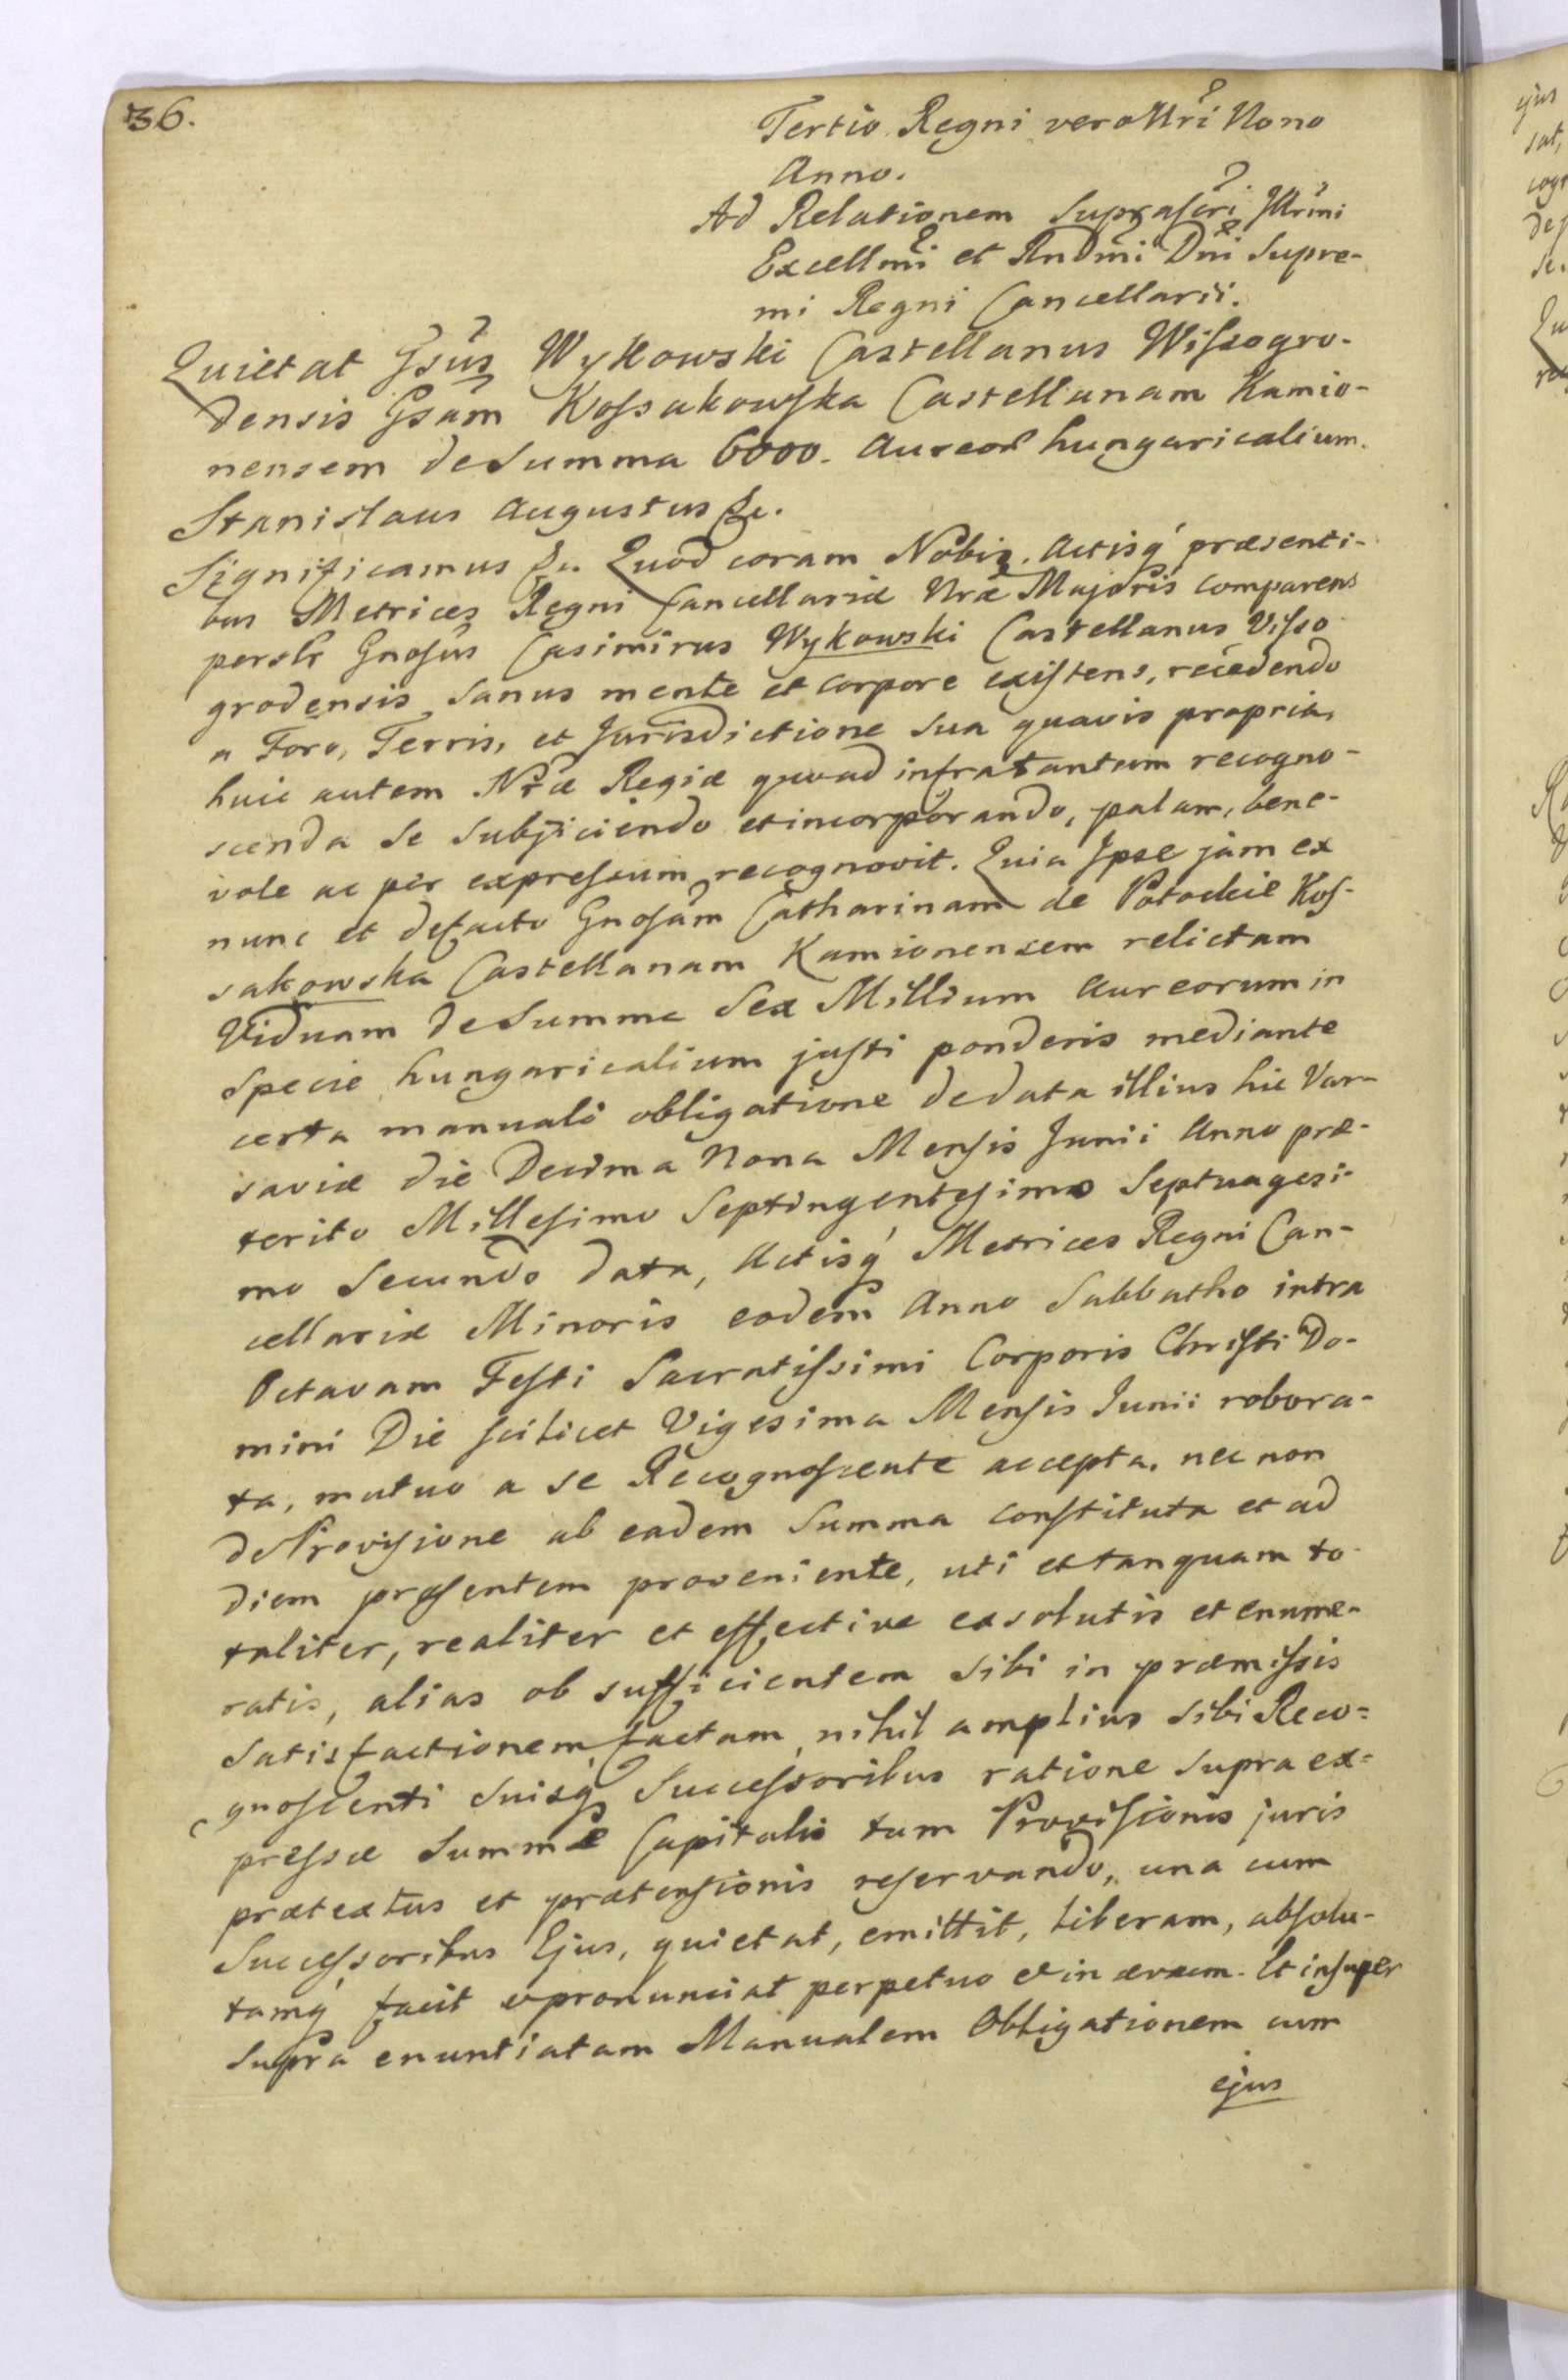 36.
Tertio Regni vero Nri Nono
Anno.
Ad Relationem Suprascri Illrmi
Excellmi et Rndmi Dni Supre-
mi Regni Cancellarii.
Quietat Gsus Wykowski Castellanus Wissogro-
densis Gsam Kossakowska Castellanam Kamio-
nensem de Summa 6000. Aureor hungaricalium.
Stanislaus Augustus &c.
Significamus &c. Quod coram Nobis. Actisq præsenti-
bus Metrices Regni Cancellariæ Nræ Majoris comparens
persle Gnosus Casimirus Wykowski Castellanus Visso
grodensis sanus mente et corpore existens, recedendo
a Foro, Terris, et Jurisdictione sua quavis propria,
huic autem Nræ Regiæ quoad infra tantum recogno-
scenda se subjiciendo et incorporando, palam, bene-
vole ac per expressum recognovit. Quia Ipse jam ex
nunc et de facto Gnosam Catharinam de Potockie Kos-
sakowska Castellanam Kamionensem relictam
Viduam de Summa Sex Millium Aureorum in
Specie hungaricalium justi ponderis mediante
certa manuali obligatione de data illius hic Var-
saviæ die Decima Nona Mensis Junii Anno præ-
terito Millesimo Septingentesimo Septuagesi-
mo Secundo data, Actisq Metrices Regni Can-
cellariæ Minoris eodem Anno Sabbatho intra
Octavam Festi Sacratissimi Corporis Christi Do-
mini Die scilicet Vigesima Mensis Junii robora-
ta, mutuo a se Recognoscente accepta, nec non
de Provisione ab eadem Summa constituta et ad
diem præsentem proveniente, uti et tanquam to-
taliter, realiter et effective exsolutis et enume-
ratis, alias ob sufficientem sibi in præmissis
satisfactionem factam, nihil amplius sibi Reco=
gnoscenti suisq Successoribus ratione supra ex=
pressæ Summæ Capitalis tam Provisionis juris
prætextus et prætensionis reservando, una cum
Successoribus Ejus, quietat, emittit, liberam, absolu-
tamq facit et pronunciat perpetuo et in ævum. Et insuper
supra enuntiatam Manualem Obligationem cum
ejus